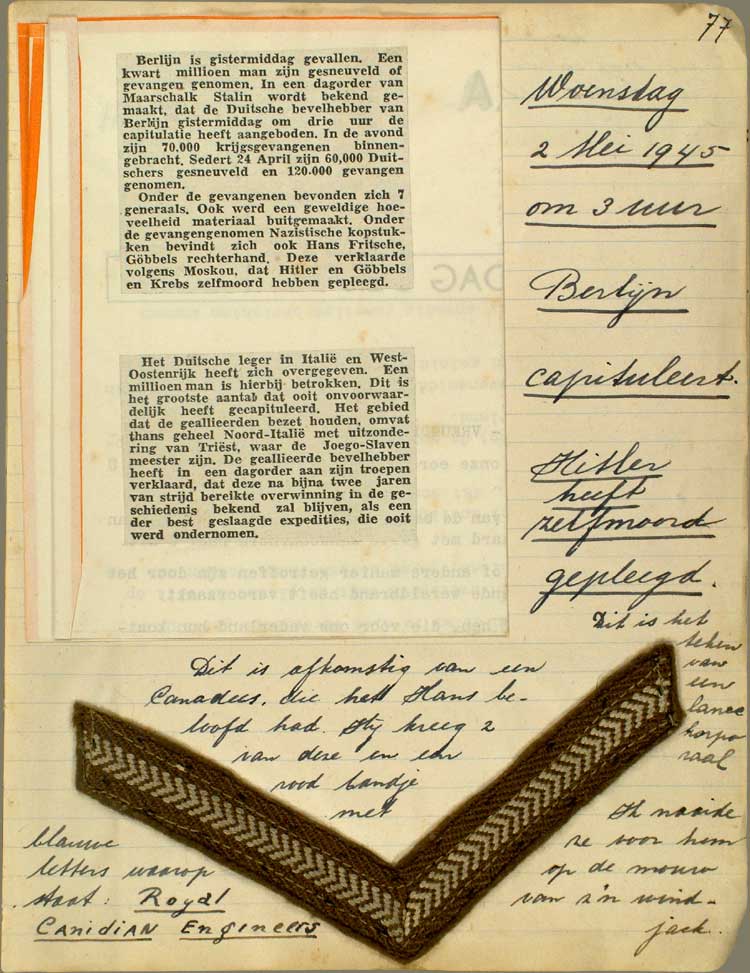 77
Berlijn is gistermiddag gevallen. Een
kwart millioen man zijn gesneuveld of
gevangen genomen. In een dagorder van
Maarschalk Stalin wordt bekend ge-
maakt, dat de Duitsche bevelhebber van
Berlijn gistermiddag om drie uur de
capitulatie heeft aangeboden. In de avond
zijn 70.000 krijgsgevangenen binnen-
gebracht. Sedert 24 April zijn 60,000 Duit-
schers gesneuveld en 120.000 gevangen
genomen.
Onder de gevangenen bevonden zich 7
generaals. Ook werd een geweldige hoe-
veelheid materiaal buitgemaakt. Onder
de gevangengenomen Nazistische kopstuk-
ken bevindt zich ook Hans Fritsche,
Göbbels rechterhand. Deze verklaarde
volgens Moskou, dat Hitler en Göbbels
en Krebs zelfmoord hebben gepleegd.
Het Duitsche leger in Italië en West-
Oostenrijk heeft zich overgegeven. Een
millioen man is hierbij betrokken. Dit is
het grootste aantal dat ooit onvoorwaar-
delijk heeft gecapituleerd. Het gebied
dat de geallieerden bezet houden, omvat
thans geheel Noord-Italië met uitzonde-
ring van Triëst, waar de Joego-Slaven
meester zijn. De geallieerde bevelhebber
heeft in een dagorder aan zijn troepen
verklaard, dat deze na bijna twee jaren
van strijd bereikte overwinning in de ge-
schiedenis bekend zal blijven, als een
der best geslaagde expedities, die ooit
werd ondernomen.
Woensdag
2 Mei 1945
om 3 uur
Berlijn
capituleert.
Hitler
heeft
zelfmoord
gepleegd.
Dit is het
teken
van
een
lance
korpo
raal
Dit is afkomstig van een
Canadees, die het Hans be-
loofd had. Hij kreeg 2
van deze en een
rood bandje
met
blauwe
letters waarop
staat: Royal
Canidian Engineers
Ik naaide
ze voor hem
op de mouw
van z'n wind-
jack.